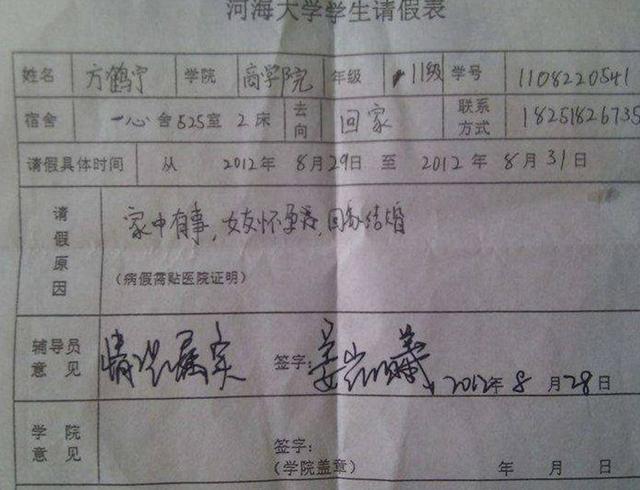 河海大学学生请假表
姓名 方鹤宁 学院 商学院 年级 11级 学号 1108220541
宿舍 一心舍525室2床 去向 回家 联系方式 18251826735
请假具体时间 从 2012年8月29日 至 2012年8月31日
请假原因 家中有事,女友怀孕,回家结婚
(病假需贴医院证明)
辅导员意见 情况属实 签字: 2012年8月28日
学院意见 签字:
(学院盖章) 年 月 日